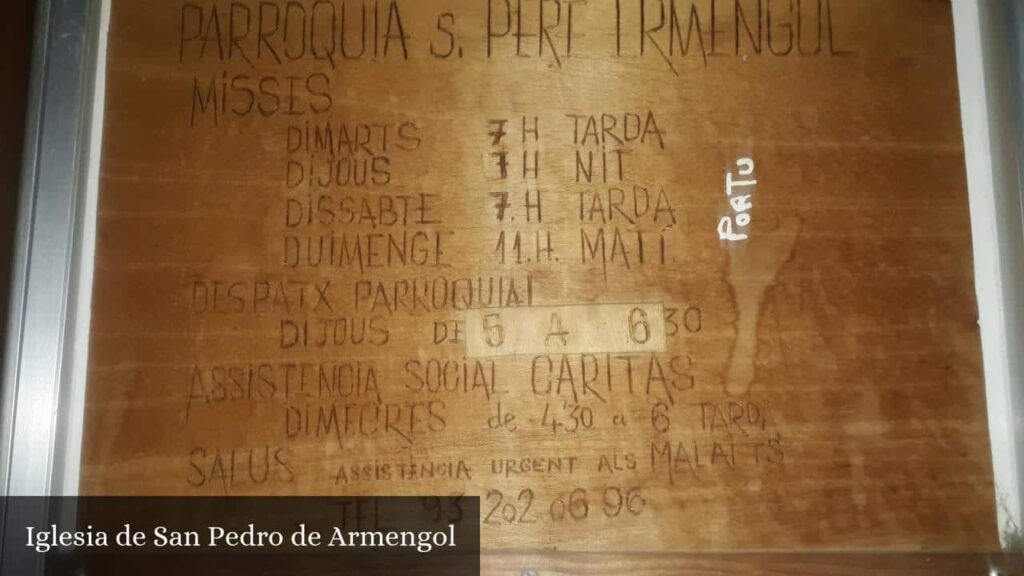 PARROQUIA S. PERE ERMENGOL
MiSSES
DIMARTS 7 H TARDA
DIJOUS 7 H NIT
DISSABTE 7. H TARDA
DUIMENGE 11. H. MATÍ
DESPATX PARROQUIAL
DIJOUS DE 5 A 6 30
ASSISTENCIA SOCIAL CARITAS
DIMECRES de 4 30 a 6 TARDA
SALUS ASSISTENCIA URGENT ALS MALALTS
TEL 93 202 06 96
PORTU
Iglesia de San Pedro de Armengol